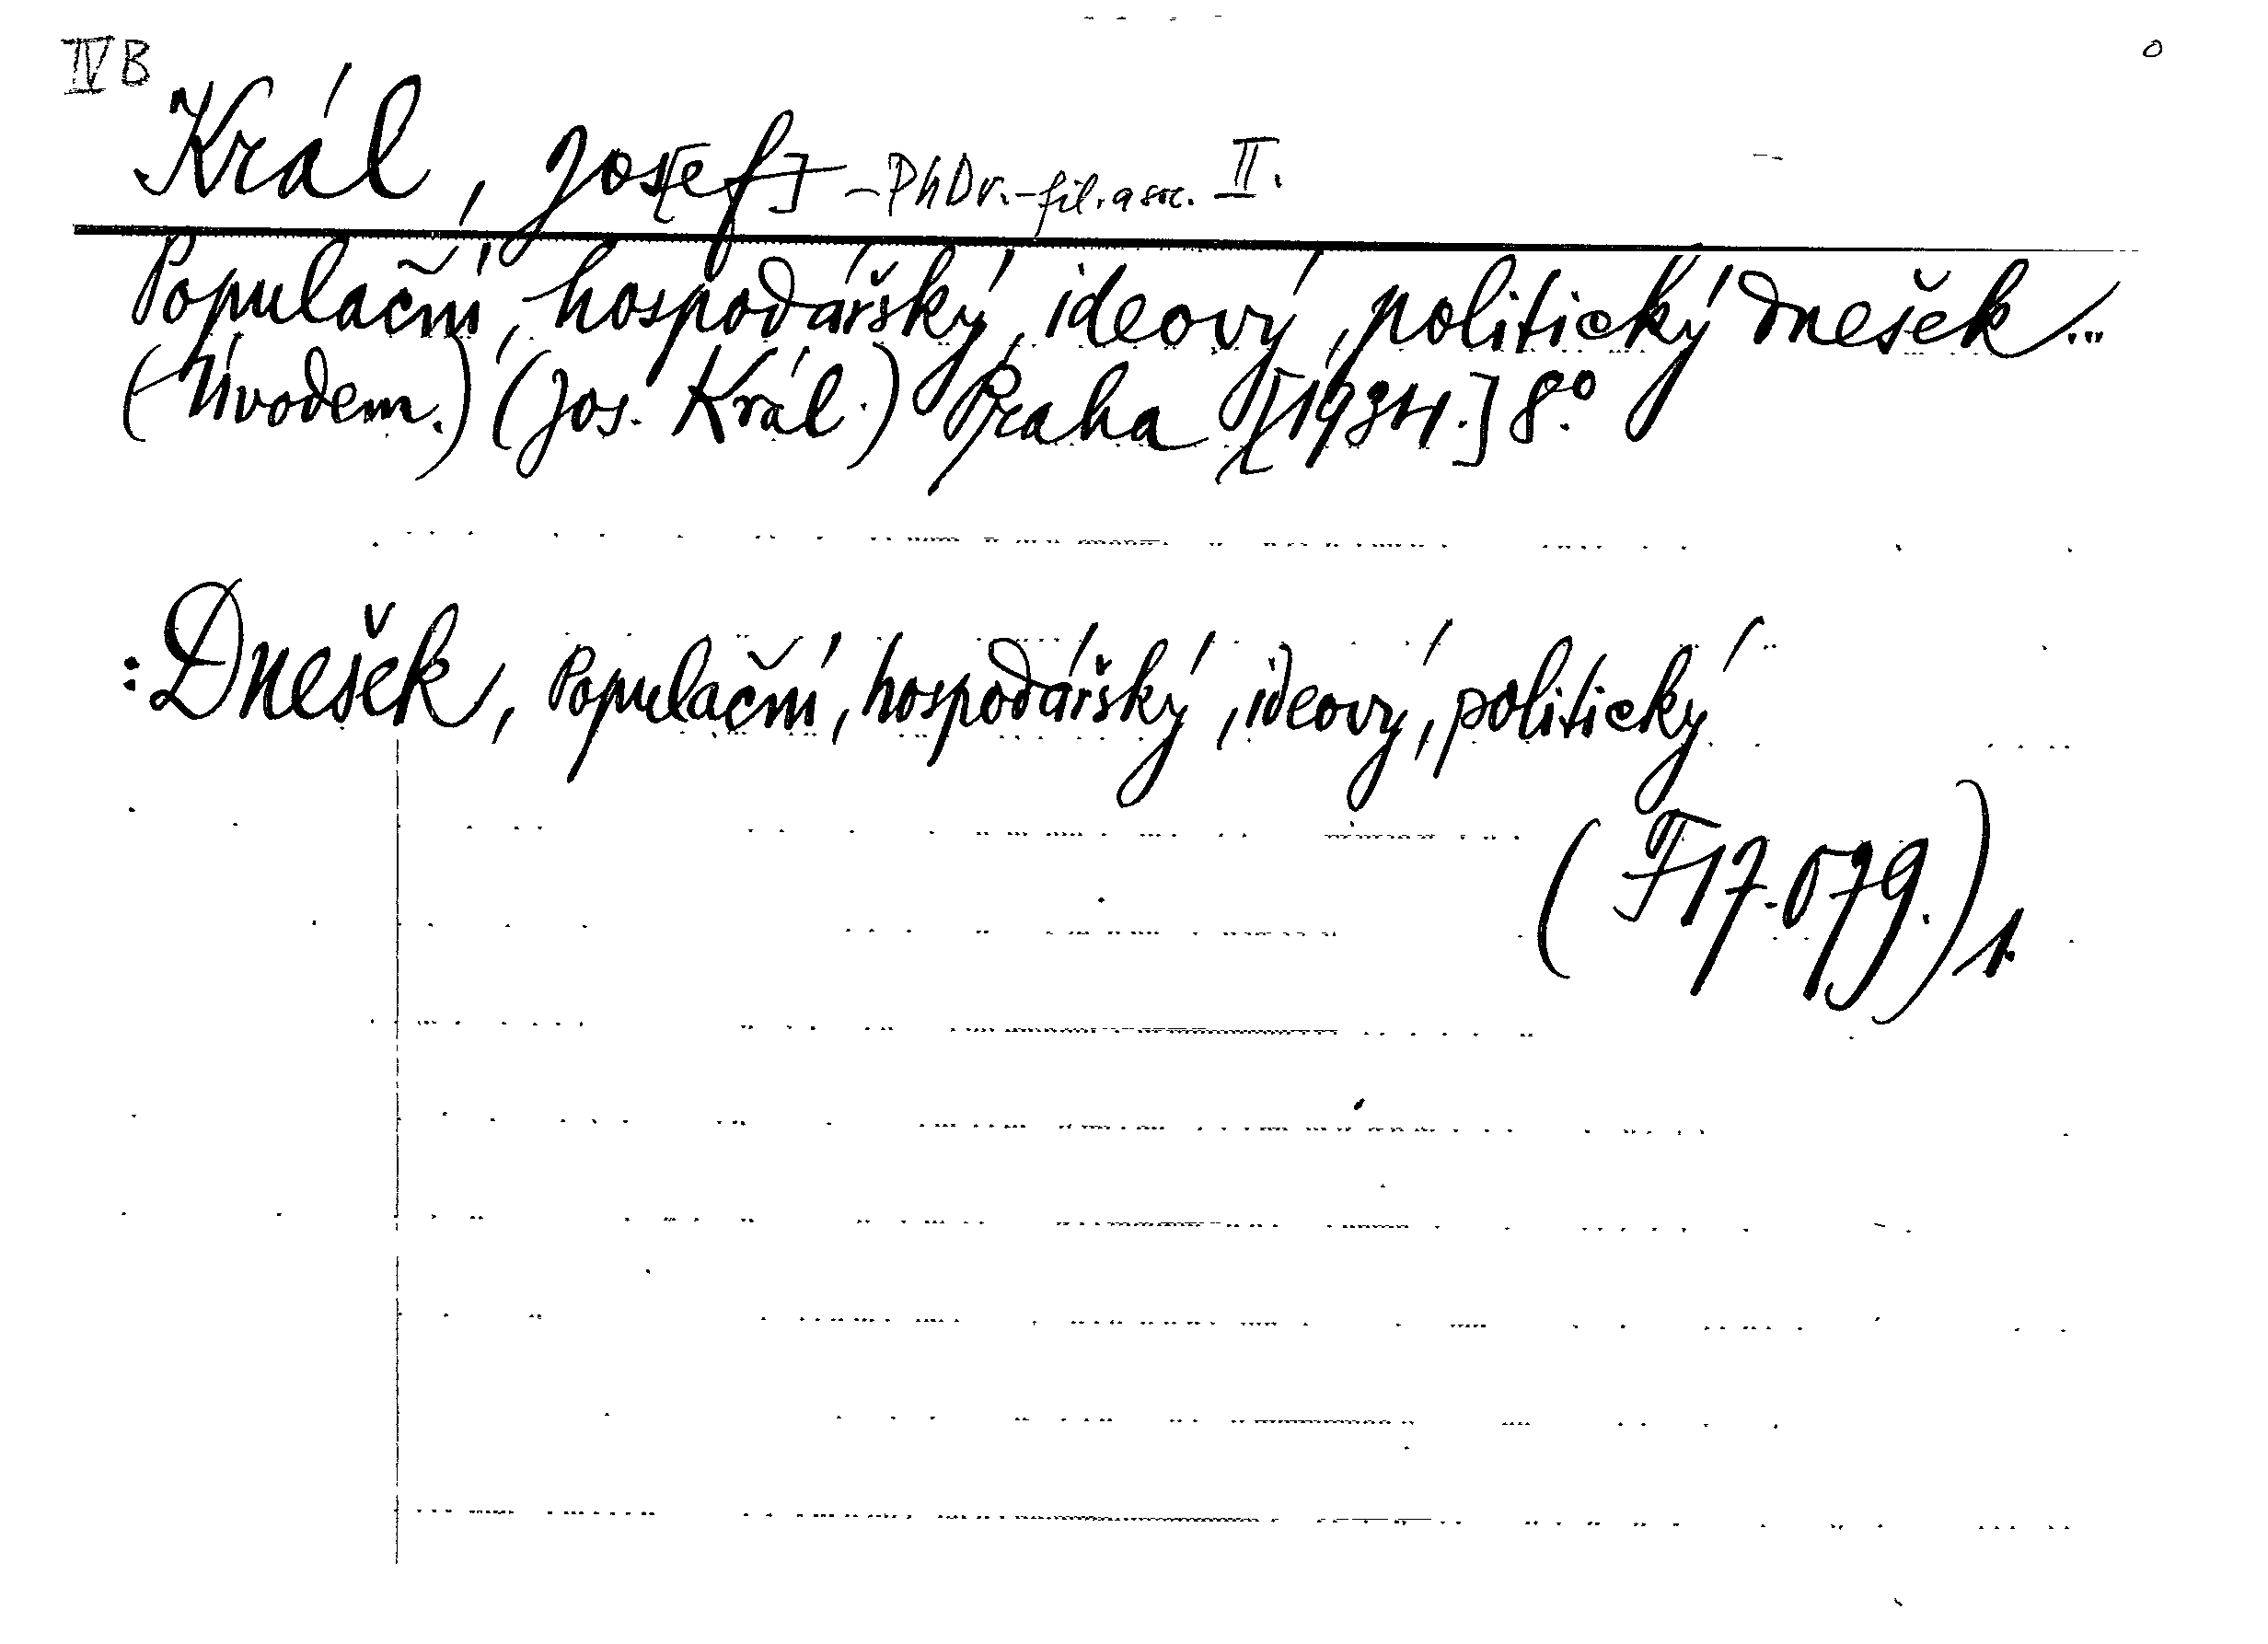 IV B
Král, Jos[ef] – PhDr. – fil. a soc. II.
Populační, hospodářský, ideový, politický dnešek...
(– Úvodem.) (Jos. Král.) Praha, [1934.] 8°.
: Dnešek, Populační, hospodářský, ideový, politický
(F 17.079.) 1.